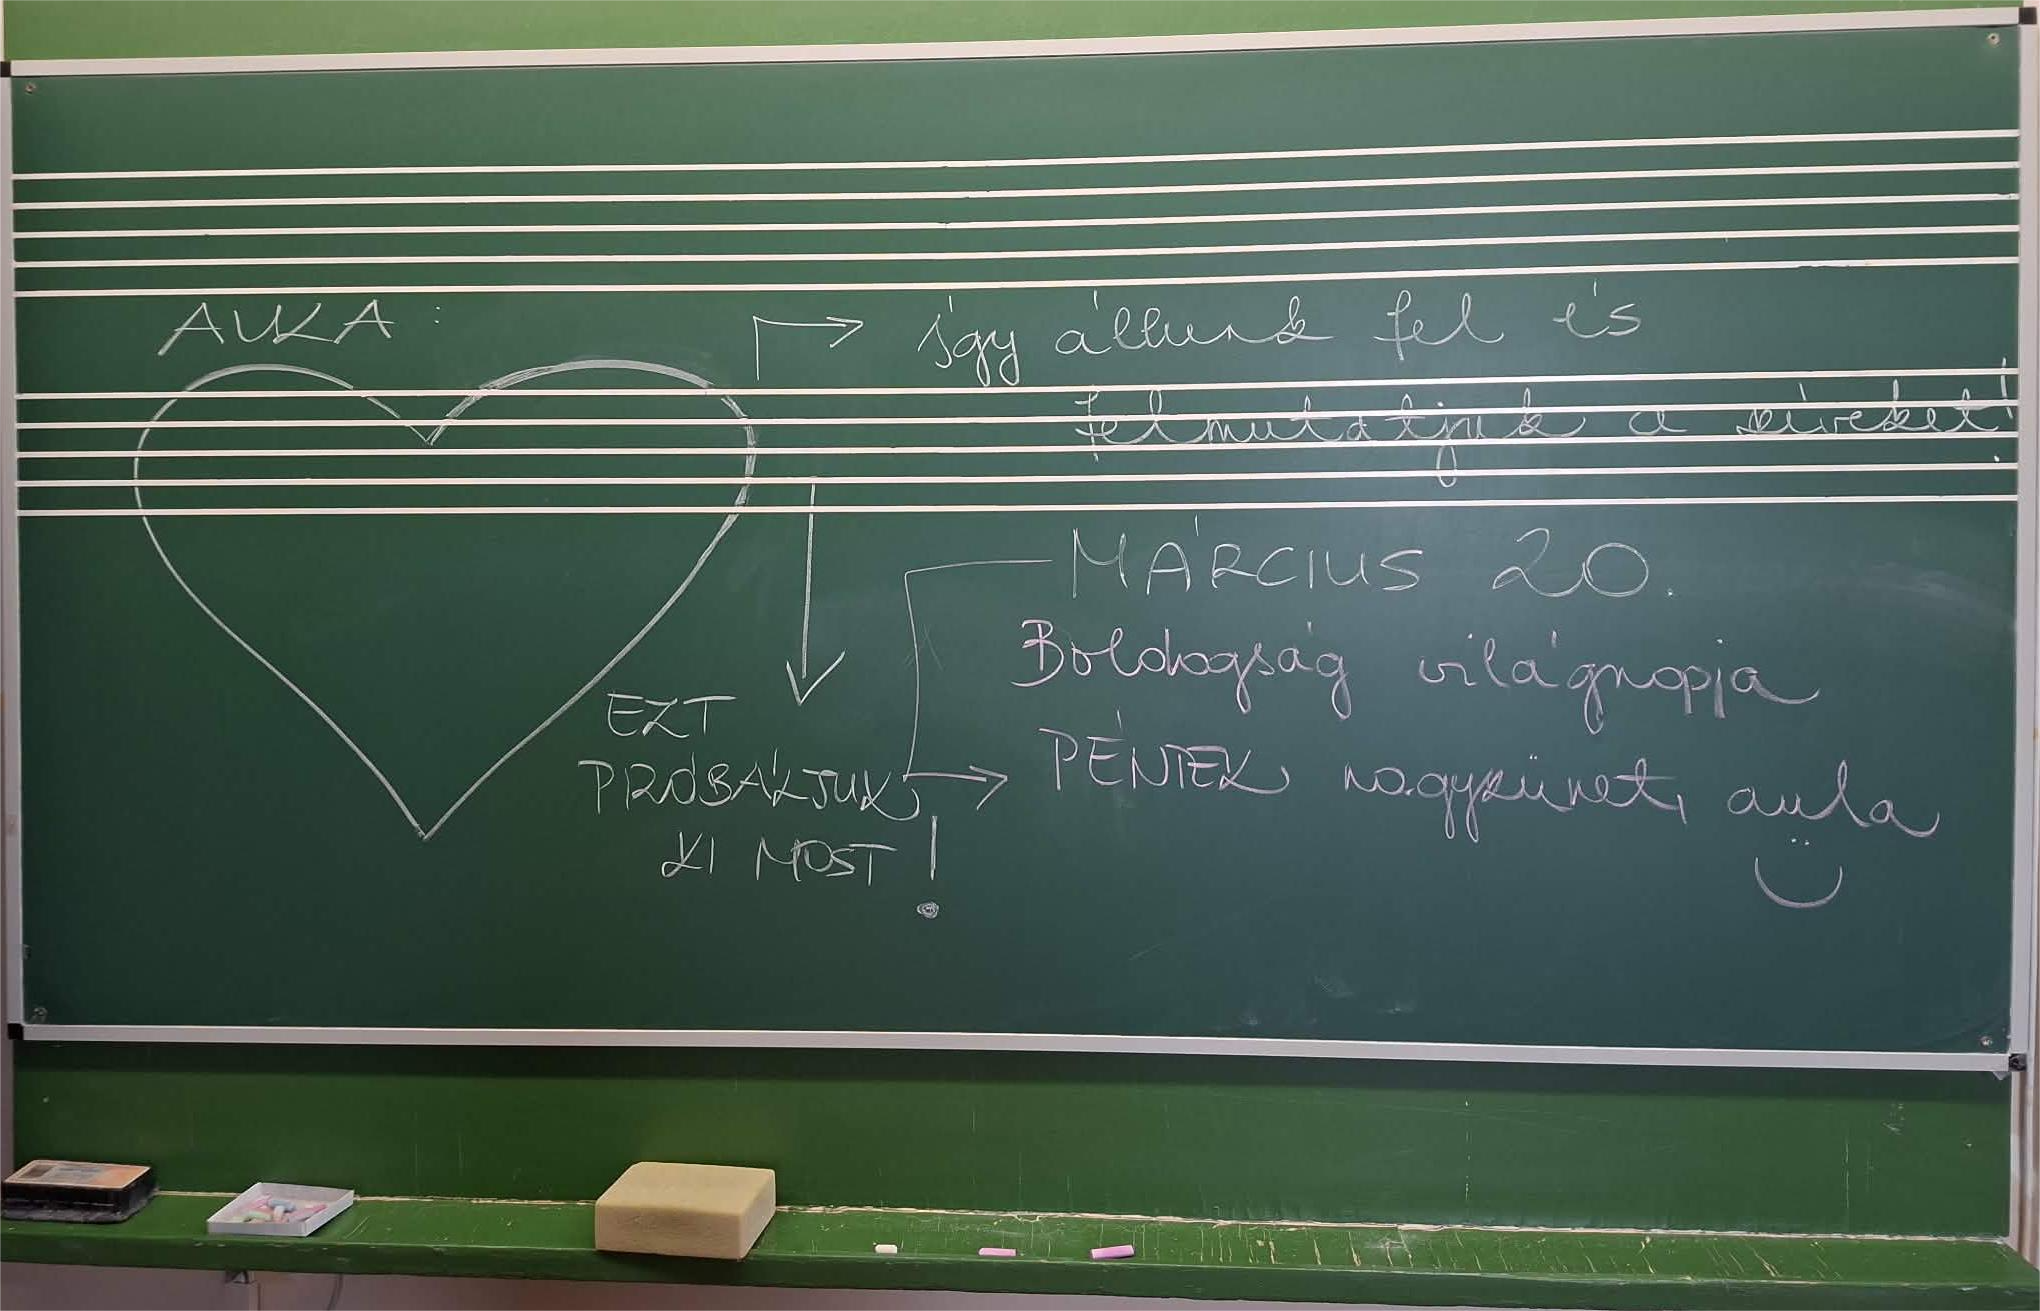 AULA:
így állunk fel és
felmutatjuk a szíveket!
MÁRCIUS 20.
Boldogság világnapja
PÉNTEK nagyszünet, aula
EZT
PRÓBÁLJUK
KI MOST!